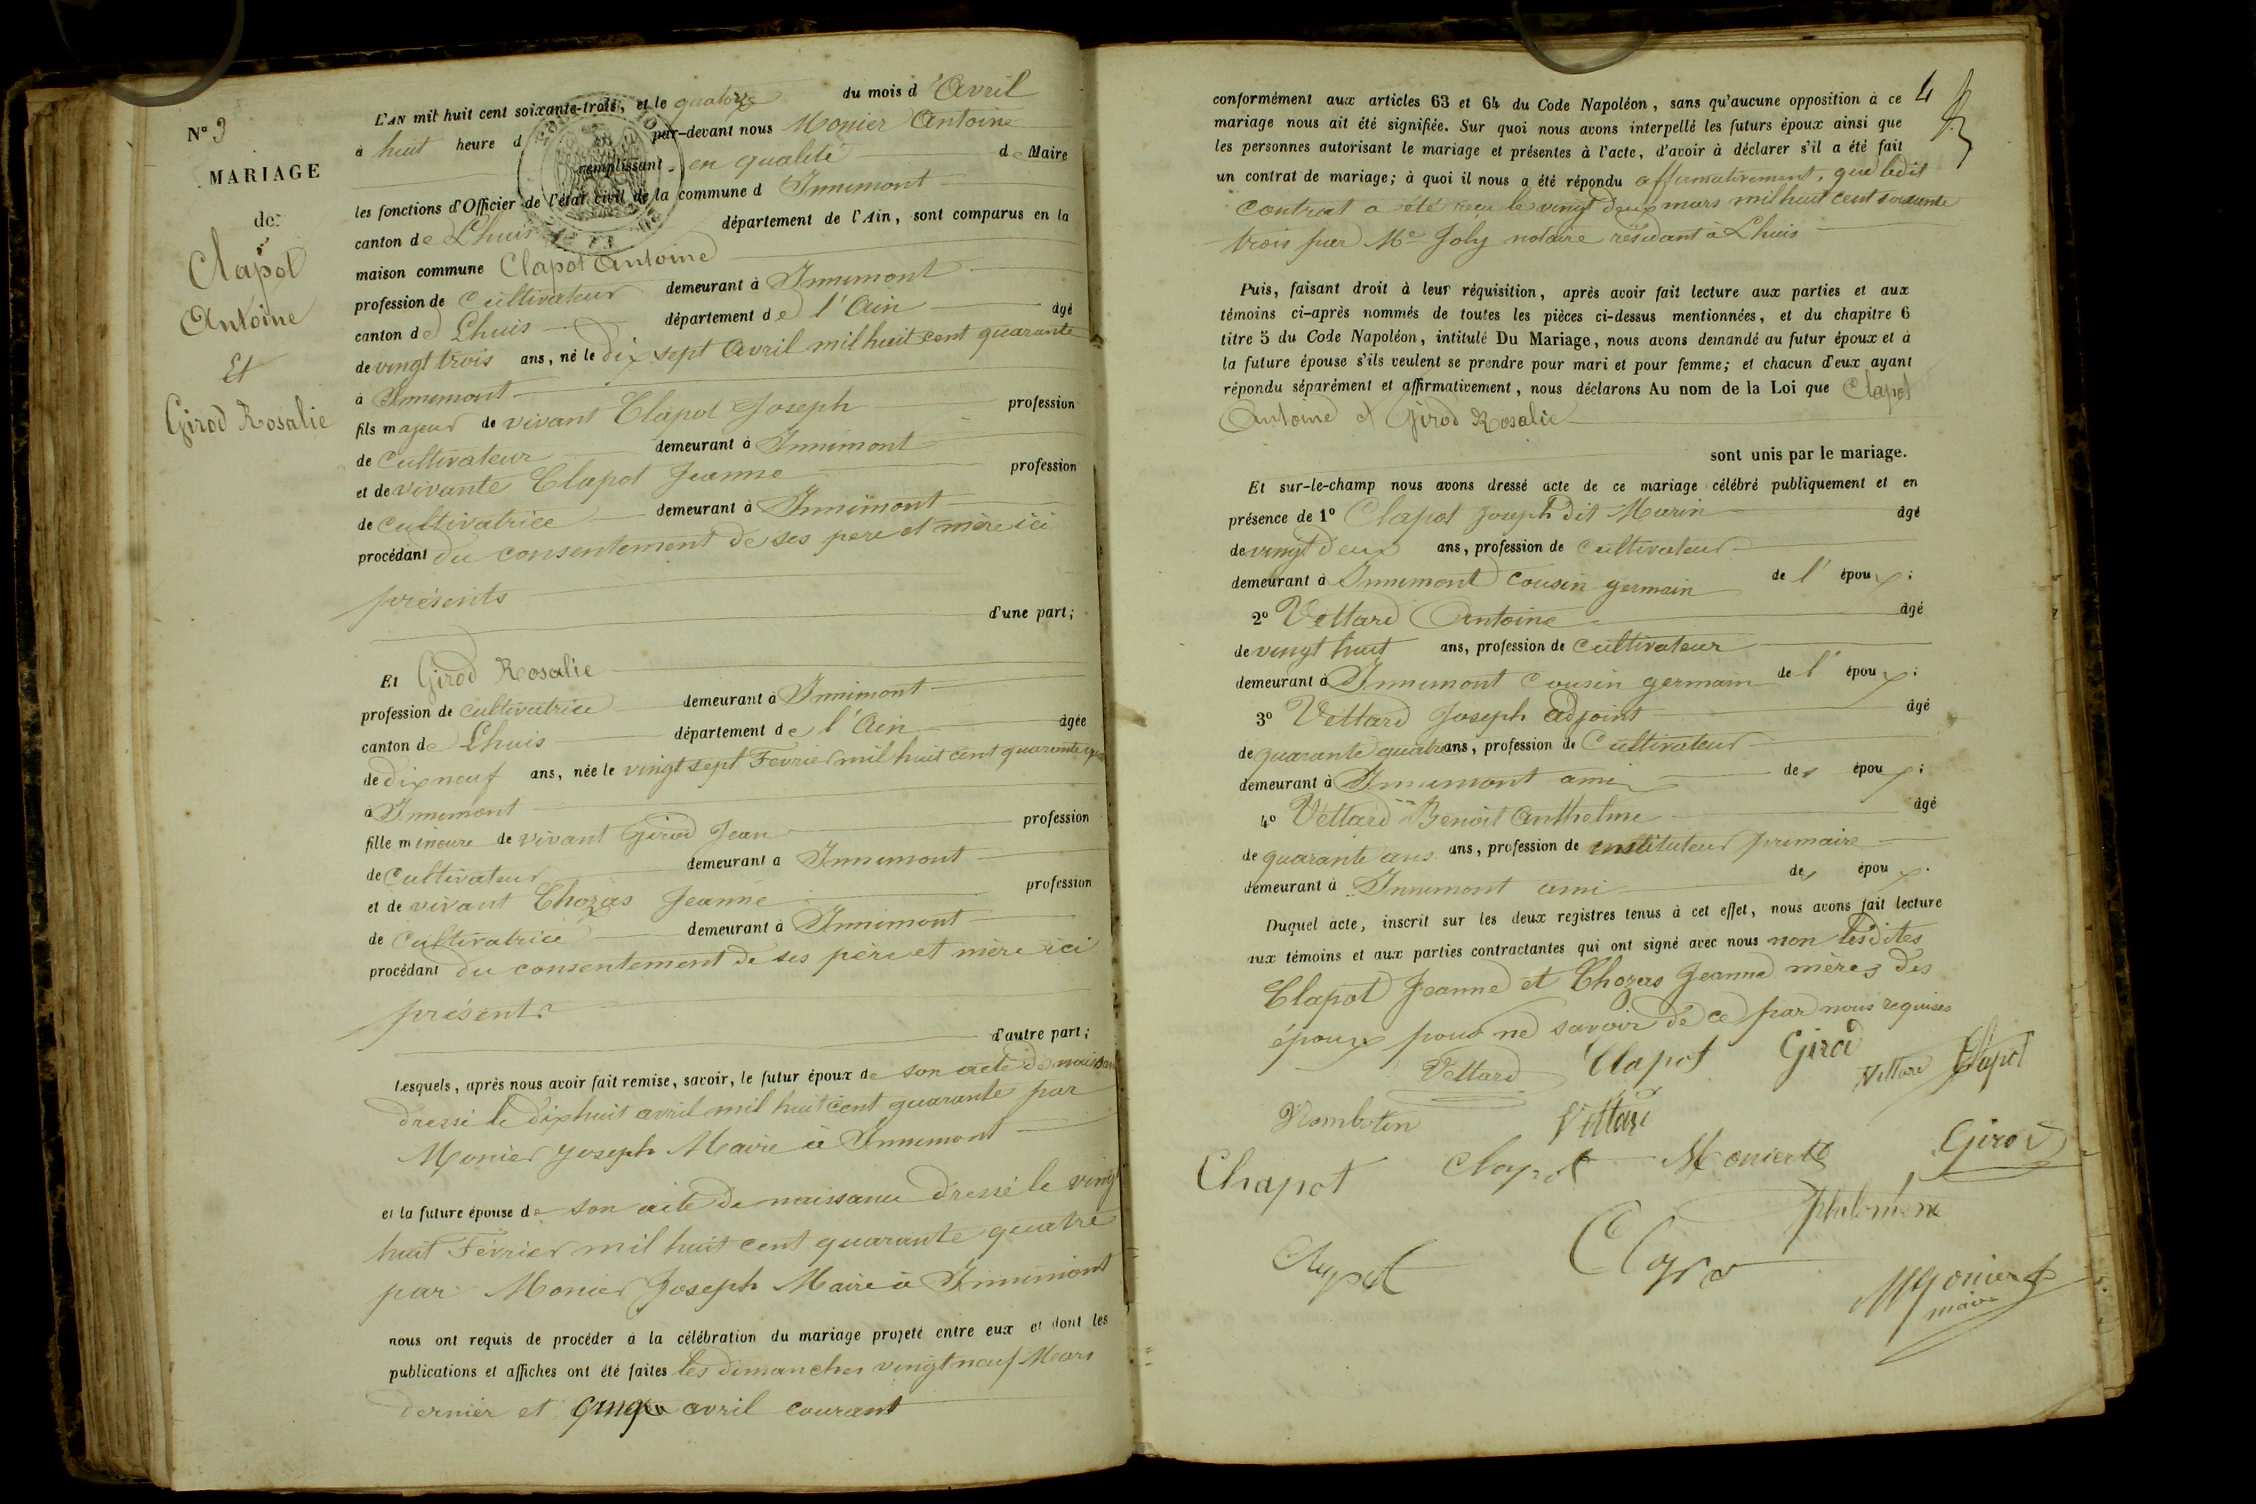 N° 3
MARIAGE
de
Clapot
Antoine
Et
Girod Rosalie
L'AN mil huit cent soixante-trois, et le quatorze du mois d'Avril
à huit heure d par-devant nous Monier Antoine
remplissant en qualité de Maire
les fonctions d'Officier de l'état civil de la commune d Innimont
canton de Lhuis département de l'Ain, sont comparus en la
maison commune Clapot Antoine
profession de Cultivateur demeurant à Innimont
canton de Lhuis département de l'Ain âgé
de vingt trois ans, né le dix sept Avril mil huit cent quarante
à Innimont
fils majeur de vivant Clapot Joseph profession
de Cultivateur demeurant à Innimont
et de vivante Clapot Jeanne profession
de Cultivatrice demeurant à Innimont
procédant du consentement de ses père et mère ici
présents
d'une part;
Et Girod Rosalie
profession de Cultivatrice demeurant à Innimont
canton de Lhuis département de l'Ain âgée
de dix neuf ans, née le vingt sept Fevrier mil huit cent quarante
à Innimont
fille mineure de vivant Girod Jean profession
de Cultivateur demeurant à Innimont
et de vivant Chozas Jeanne profession
de Cultivatrice demeurant à Innimont
procédant du consentement de ses père et mère ici
présents
d'autre part;
Lesquels, après nous avoir fait remise, savoir, le futur époux de son acte de
dressé le dix huit avril mil huit cent quarante par
Monier Joseph Maire à Innimont
et la future épouse de son acte de naissance dressé le ving
huit Février mil huit cent quarante quatre
par Monier Joseph Maire à Innimont
nous ont requis de procéder à la célébration du mariage projeté entre eux et dont les
publications et affiches ont été faites les dimanches vingt neuf Mars
dernier et cinq avril courant
4
conformément aux articles 63 et 64 du Code Napoléon, sans qu'aucune opposition à ce
mariage nous ait été signifiée. Sur quoi nous avons interpellé les futurs époux ainsi que
les personnes autorisant le mariage et présentes à l'acte, d'avoir à déclarer s'il a été fait
un contrat de mariage; à quoi il nous a été répondu affirmativement, que ledit
contrat a été reçu le vingt deux mars mil huit cent soixante
trois par Me Joly notaire résidant à Lhuis
Puis, faisant droit à leur réquisition, après avoir fait lecture aux parties et aux
témoins ci-après nommés de toutes les pièces ci-dessus mentionnées, et du chapitre 6
titre 5 du Code Napoléon, intitulé Du Mariage, nous avons demandé au futur époux et à
la future épouse s'ils veulent se prendre pour mari et pour femme; et chacun d'eux ayant
répondu séparément et affirmativement, nous déclarons Au nom de la Loi que Clapot
Antoine et Girod Rosalie
sont unis par le mariage.
Et sur-le-champ nous avons dressé acte de ce mariage célébré publiquement et en
présence de 1° Clapot Joseph dit Marin âgé
de vingt deux ans, profession de Cultivateur
demeurant à Innimont Cousin germain de l' époux;
2° Vettard Antoine âgé
de vingt huit ans, profession de Cultivateur
demeurant à Innimont Cousin germain de l' époux;
3° Vettard Joseph adjoint âgé
de quarante quatre ans, profession de Cultivateur
demeurant à Innimont ami des époux;
4° Vettard Benoit Anthelme âgé
de quarante ans ans, profession de instituteur primaire
demeurant à Innimont ami des époux.
Duquel acte, inscrit sur les deux registres tenus à cet effet, nous avons fait lecture
aux témoins et aux parties contractantes qui ont signé avec nous non lesdites
Clapot Jeanne et Chozas Jeanne mères des
époux pour ne savoir de ce par nous requises
Vettard Clapot Girod Vettard Clapot
Vettard
Chapot Clapot Monier Girod
Philomène
Clapot
Monier
maire